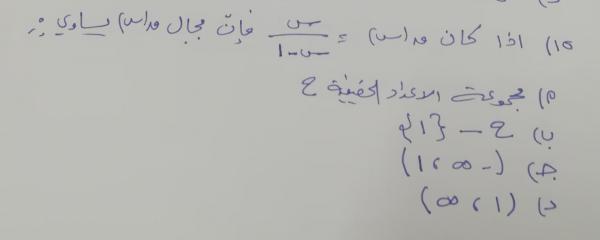 ١٥) اذا كان هـ(س) = س / س-١ فإنّ مجال هـ(س) يساوي :
م) مجموعة الاعداد الحقيقية ح
ب) ح - {١}
ج) (-∞، ١)
د) (١، ∞)